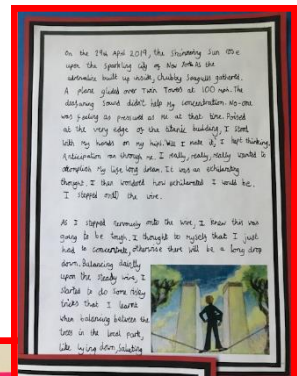 On the 29th April 2019, the Shimmering Sun rose
upon the Sparkling city of New York. As the
adrenaline built up inside, chubby Seagulls gathered.
A plane glided over Twin Towers at 100 mph. The
deafening Sound didn't help my concentration. No-one
was feeling as pressured as me at that time. Poised
at the very edge of the titanic building, I stood
with my hands on my hips. Will I make it, I kept thinking.
Anticipation ran through me. I really, really, really wanted to
accomplish my life long dream. It was an exhilarating
thought. I then wondered how exhilarated I would be.
I stepped onto the wire.
As I stepped nervously onto the wire, I knew this was
going to be tough. I thought to myself that I just
had to concentrate, otherwise there will be a long drop
down. Balancing daintily
upon the steady wire, I
started to do some risky
tricks that I learnt
when balancing between the
trees in the local park,
like lying down, Saluting